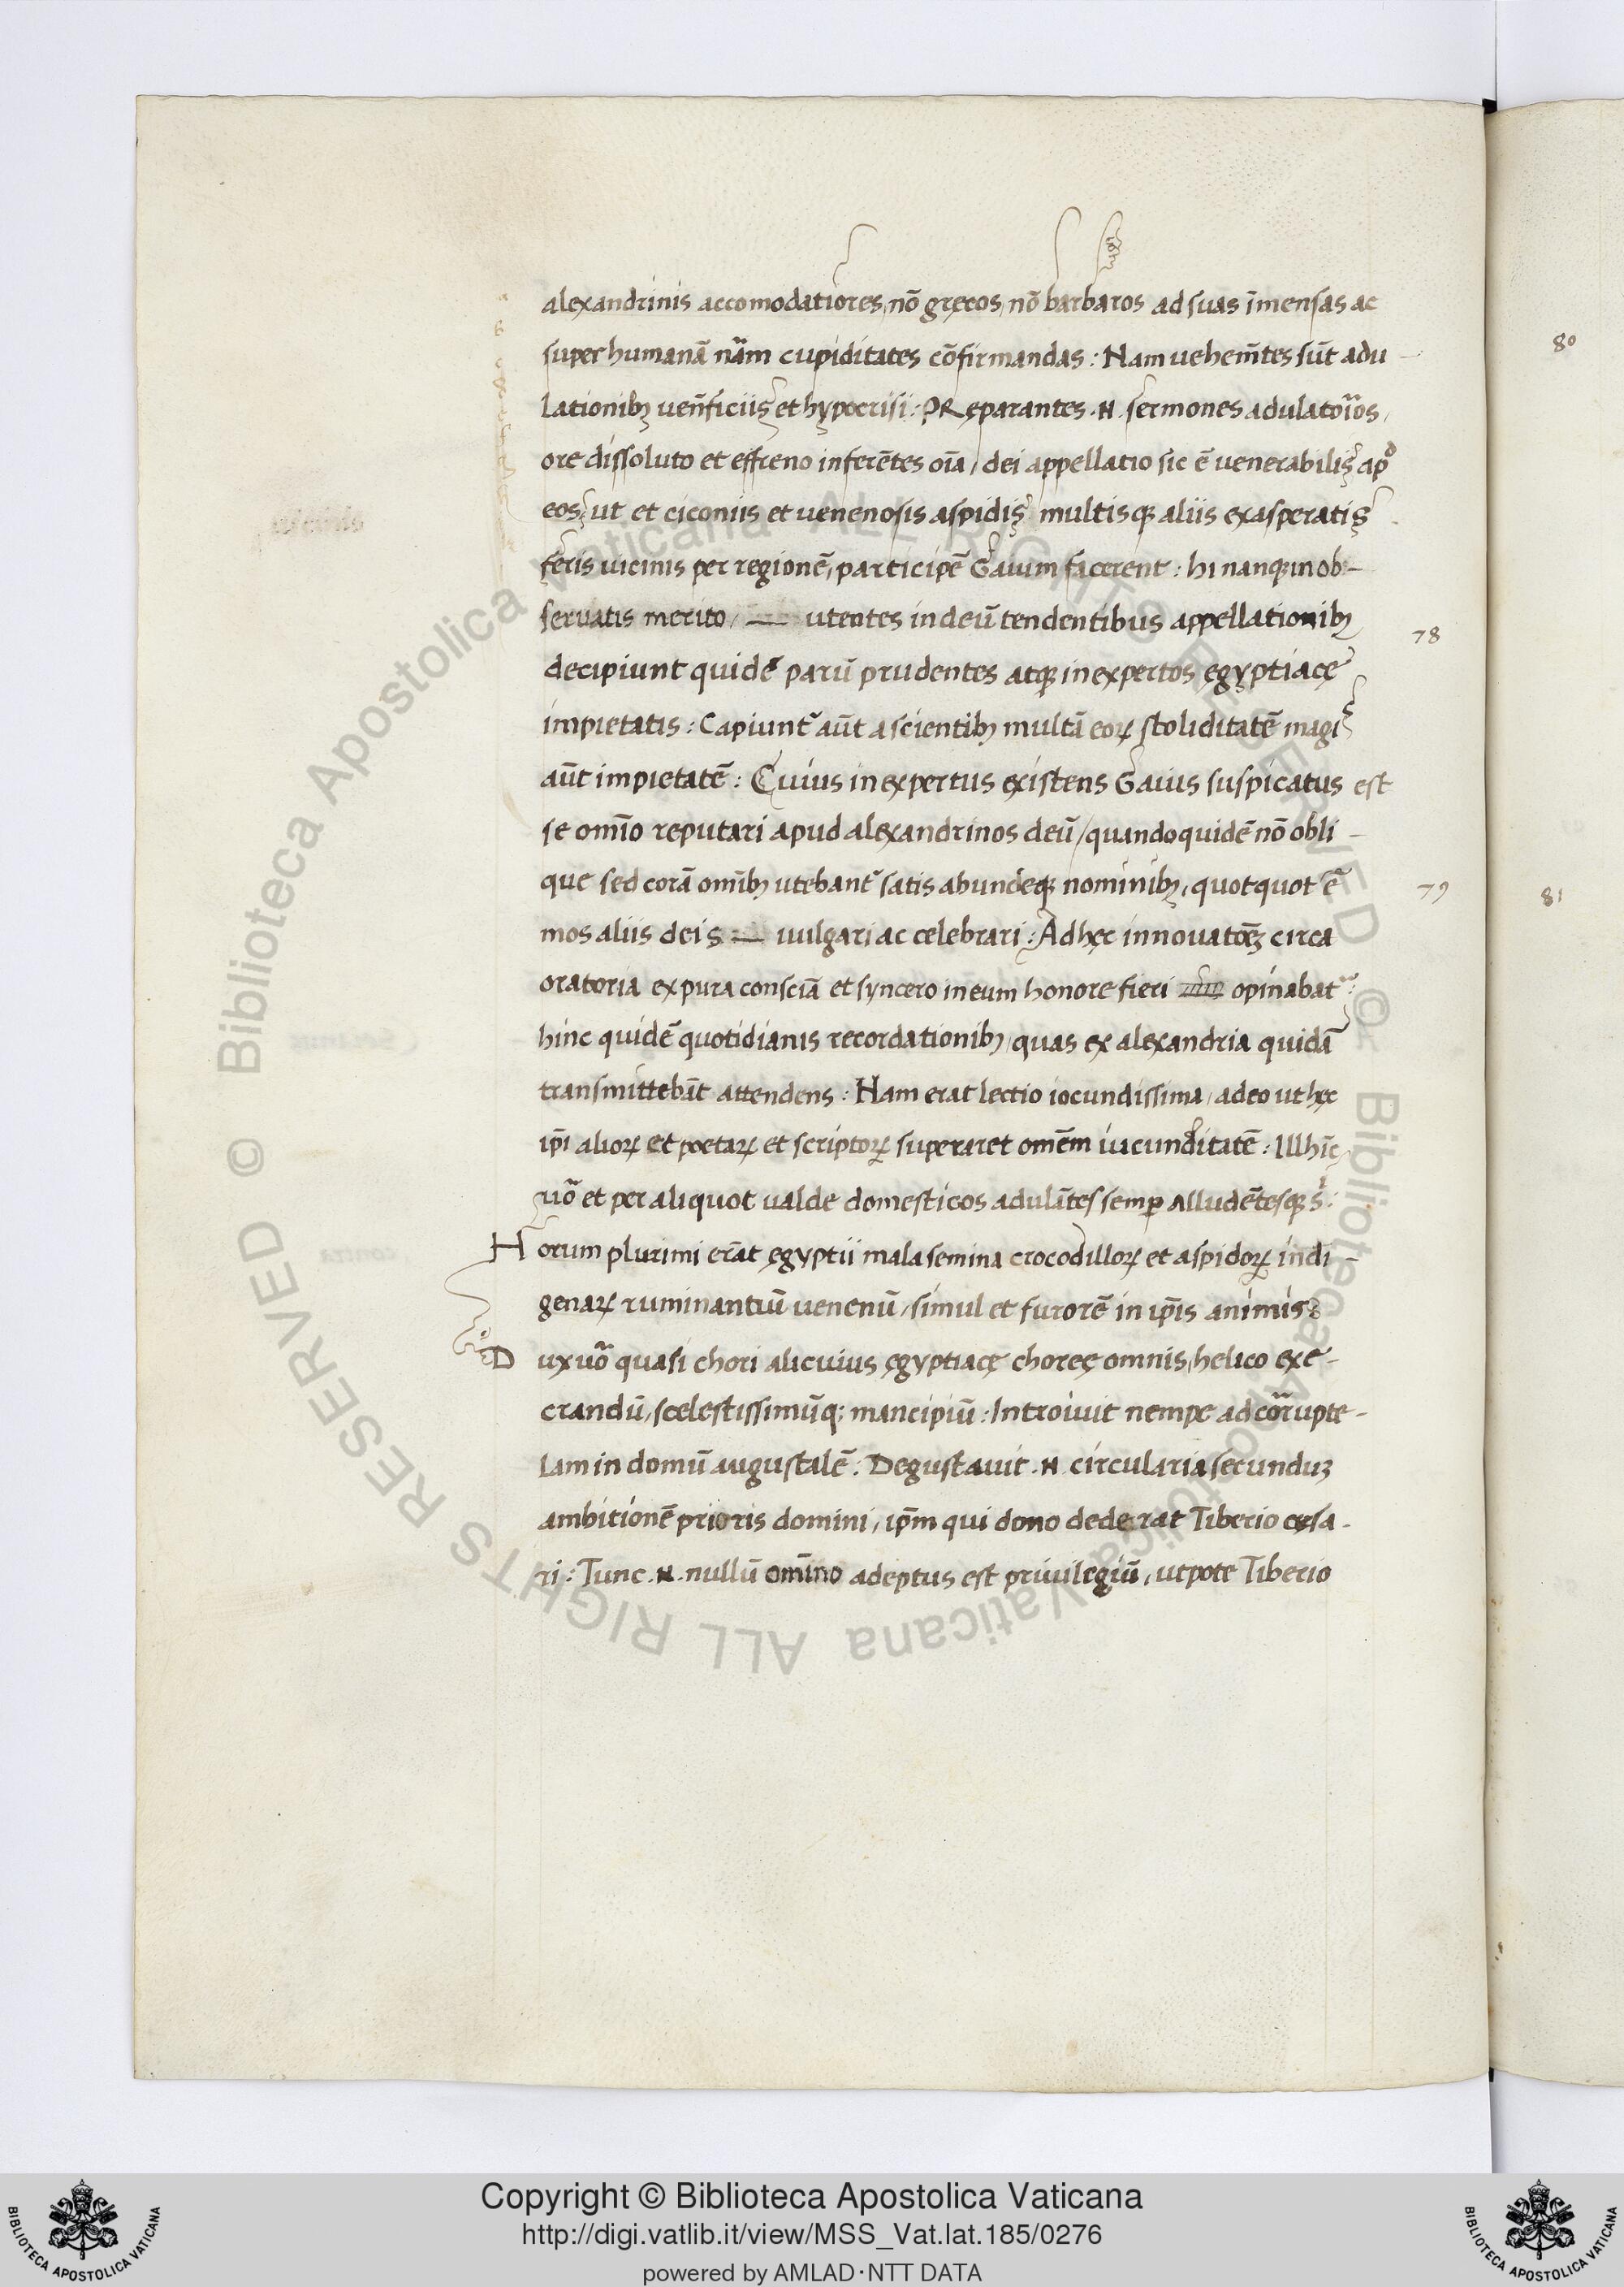 alexandrinis accomodatiores, nõ gręcos, nõ barbaros ad suas ĩmensas ac
super humanã nãm cupiditates cõfirmandas : Nam uehem̃tes sũt adu -
lationibꝫ ueñficiis et hypocrisi : PRęparantes .N. sermones adulatoĩos,
ore dissoluto et effreno inferẽtes oĩa, dei appellatio sic ẽ uenerabilis ap̊
eos, ut et ciconiis et uenenosis aspidis multisqꝫ aliis exasperatis
feris uicinis per regionẽ, participẽ Gaium facerent : hi nanqꝫ in ob -
seruatis merito, — utentes in deũ tendentibus appellationibꝫ
78
decipiunt quidẽ parũ prudentes atqꝫ inexpertos ęgyptiacę
impietatis : Capiunt᷑ aũt a scientibꝫ multã eoꝝ stoliditatẽ magis
aũt impietatẽ : Cuius inexpertus existens Gaius suspicatus est
se omĩo reputari apud alexandrinos deũ, quandoquidẽ nõ obli -
que sed corã omĩbꝫ utebant᷑ satis abundeqꝫ nominibꝫ, quotquot ẽ
79
mos aliis deis — uulgari ac celebrari : Ad hęc innouatões circa
oratoria ex pura consciã et syncero in eum honore fieri opinabat᷑ :
hinc quidẽ quotidianis recordationibꝫ, quas ex alexandria quidã
transmittebãt attendens : Nam erat lectio iocundissima, adeo ut hęc
ip̃i alioꝝ et poetaꝝ et scriptoꝝ superaret omẽm iucunditatẽ : Illhĩc
uõ et per aliquot ualde domesticos adulãtes semꝑ alludẽtesqꝫ s :
Horum plurimi erãt ęgyptii mala semina crocodilloꝝ et aspidoꝝ indi -
genaꝝ ruminantiũ uenenũ, simul et furorẽ in ip̃is animis
Dux uõ quasi chori alicuius ęgyptiacę choreę omnis, helico exe -
crandũ, scelestissimũq; mancipiũ : Introiuit nempe ad corrupte -
lam in domũ augustalẽ : Degustauit .N. circularia secunduꝫ
ambitionẽ prioris domini, ip̃m qui dono dederat Tiberio cęsa -
ri : Tunc .N. nullũ omĩno adeptus est priuilegiũ, utpote Tiberio
80
81
© Biblioteca Apostolica Vaticana ALL RIGHTS RESERVED © Biblioteca Apostolica Vaticana ALL RIGHTS RESERVED
Copyright © Biblioteca Apostolica Vaticana
http://digi.vatlib.it/view/MSS_Vat.lat.185/0276
powered by AMLAD·NTT DATA
BIBLIOTECA APOSTOLICA VATICANA
BIBLIOTECA APOSTOLICA VATICANA